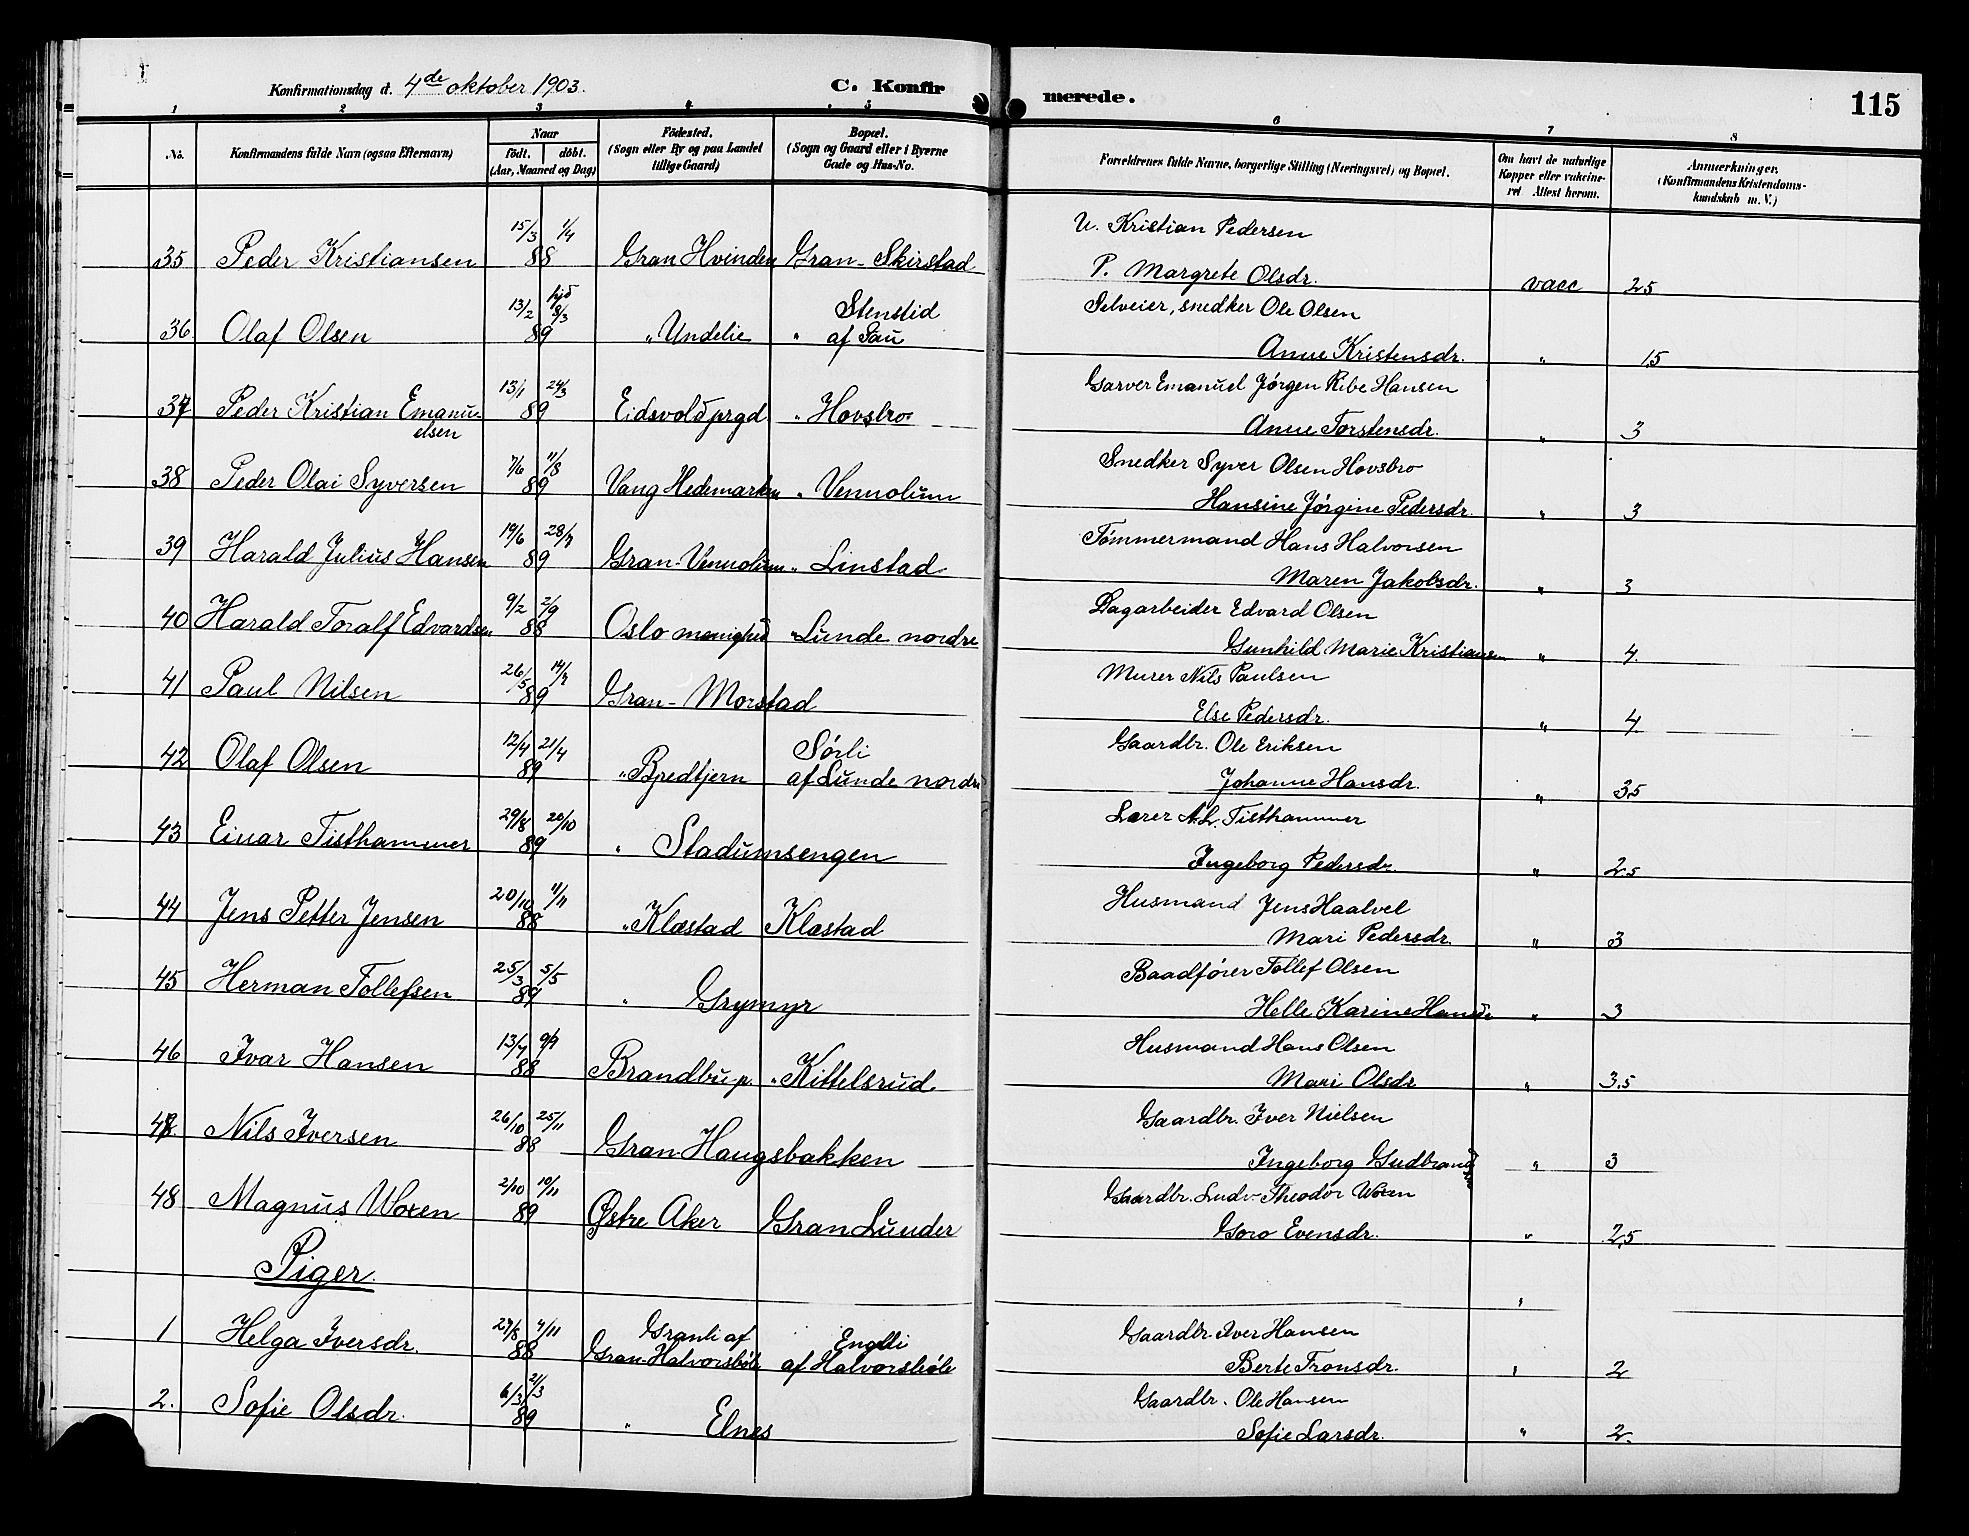 Konfirmationsdag d. 4de oktober 1903.
C. Konfirmerede.
115
1 2 3 4 5 6 7 8
No.
Konfirmandens fulde Navn (ogsaa Efternavn)
Naar
födt. döbt.
(Aar, Maaned og Dag)
Födested.
(Sogn eller By og paa Landet
tillige Gaard)
Bopæl.
(Sogn og Gaard eller i Byerne
Gade og Hus-No.
Forældrenes fulde Navne, borgerlige Stilling (Næringsvei) og Bopæl.
Om havt de naturlige
Kopper eller vakcine-
ret Attest herom.
Anmærkninger.
(Konfirmandens Kristendoms-
kundskab m. V.)
35 Peder Kristiansen 15/3 1/4 88 Gran Hvinden Gran - Skirstad
U. Kristian Pedersen
P. Margrete Olsdr. vacc 25
36 Olaf Olsen 13/2 hjd 8/3 89 " Undelie " Stenstid
af Sau
Selveier, snedker Ole Olsen
Anne Kristensdr. " 1,5
37 Peder Kristian Emanu-
elsen 13/1 24/3 89 Eidsvold prgd " Hovsbro
Garver Emanuel Jørgen Ribe Hansen
Anne Torstensdr. " 3
38 Peder Olai Syversen 7/6 11/8 89 Vang Hedemarken " Vennolum
Snedker Syver Olsen Hovsbro
Hansine Jørgine Pedersdr. " 3
39 Harald Julius Hansen 19/6 28/7 89 Gran - Vennolum " Linstad
Tømmermand Hans Halvorsen
Maren Jakobsdr. " 3
40 Harald Toralf Edvardsen 9/2 2/9 88 Oslo menighed " Lunde nordre
Dagarbeider Edvard Olsen
Gunhild Marie Kristiansen " 4
41 Paul Nilsen 26/5 14/7 89 Gran - Morstad
Murer Nils Paulsen
Else Pedersdr. " 4
42 Olaf Olsen 12/4 21/4 89 " Bredtjern Sørli
af Lunde nordre
Gaardbr. Ole Eriksen
Johanne Hansdr. " 3,5
43 Einar Tisthammer 29/8 20/10 89 " Stadumsengen
Lærer A.L. Tisthammer
Ingeborg Pedersdr. " 2,5
44 Jens Petter Jensen 20/10 11/11 88 " Klæstad Klæstad
Husmand Jens Haalvel
Mari Pedersdr. " 3
45 Herman Tollefsen 25/3 5/5 89 " Grymyr
Baadfører Tollef Olsen
Helle Karine Hansdr " 3
46 Ivar Hansen 13/7 9/9 88 Brandbu p. " Kittelsrud
Husmand Hans Olsen
Mari Olsdr " 3,5
47. Nils Iversen 26/10 25/11 88 Gran - Haugsbakken
Gaardbr. Iver Nielsen
Ingeborg Gudbrandsdr " 3
48 Magnus Woxen 2/10 10/11 89 Østre Aker Gran Lunder
Gaardbr. Ludv. Theodor Woxen
Goro Evensdr. " 2,5
Piger.
"
1 Helga Iversdr. 27/8 4/11 88 Granli af
Gran - Halvorsbøle Engelli
af Halvorsbøle
Gaardbr. Iver Hansen
Berte Tronsdr. " 2
2. Sofie Olsdr. 6/3 21/3 89 " Elnes
Gaardbr. Ole Hansen
Sofie Larsdr. " 2.